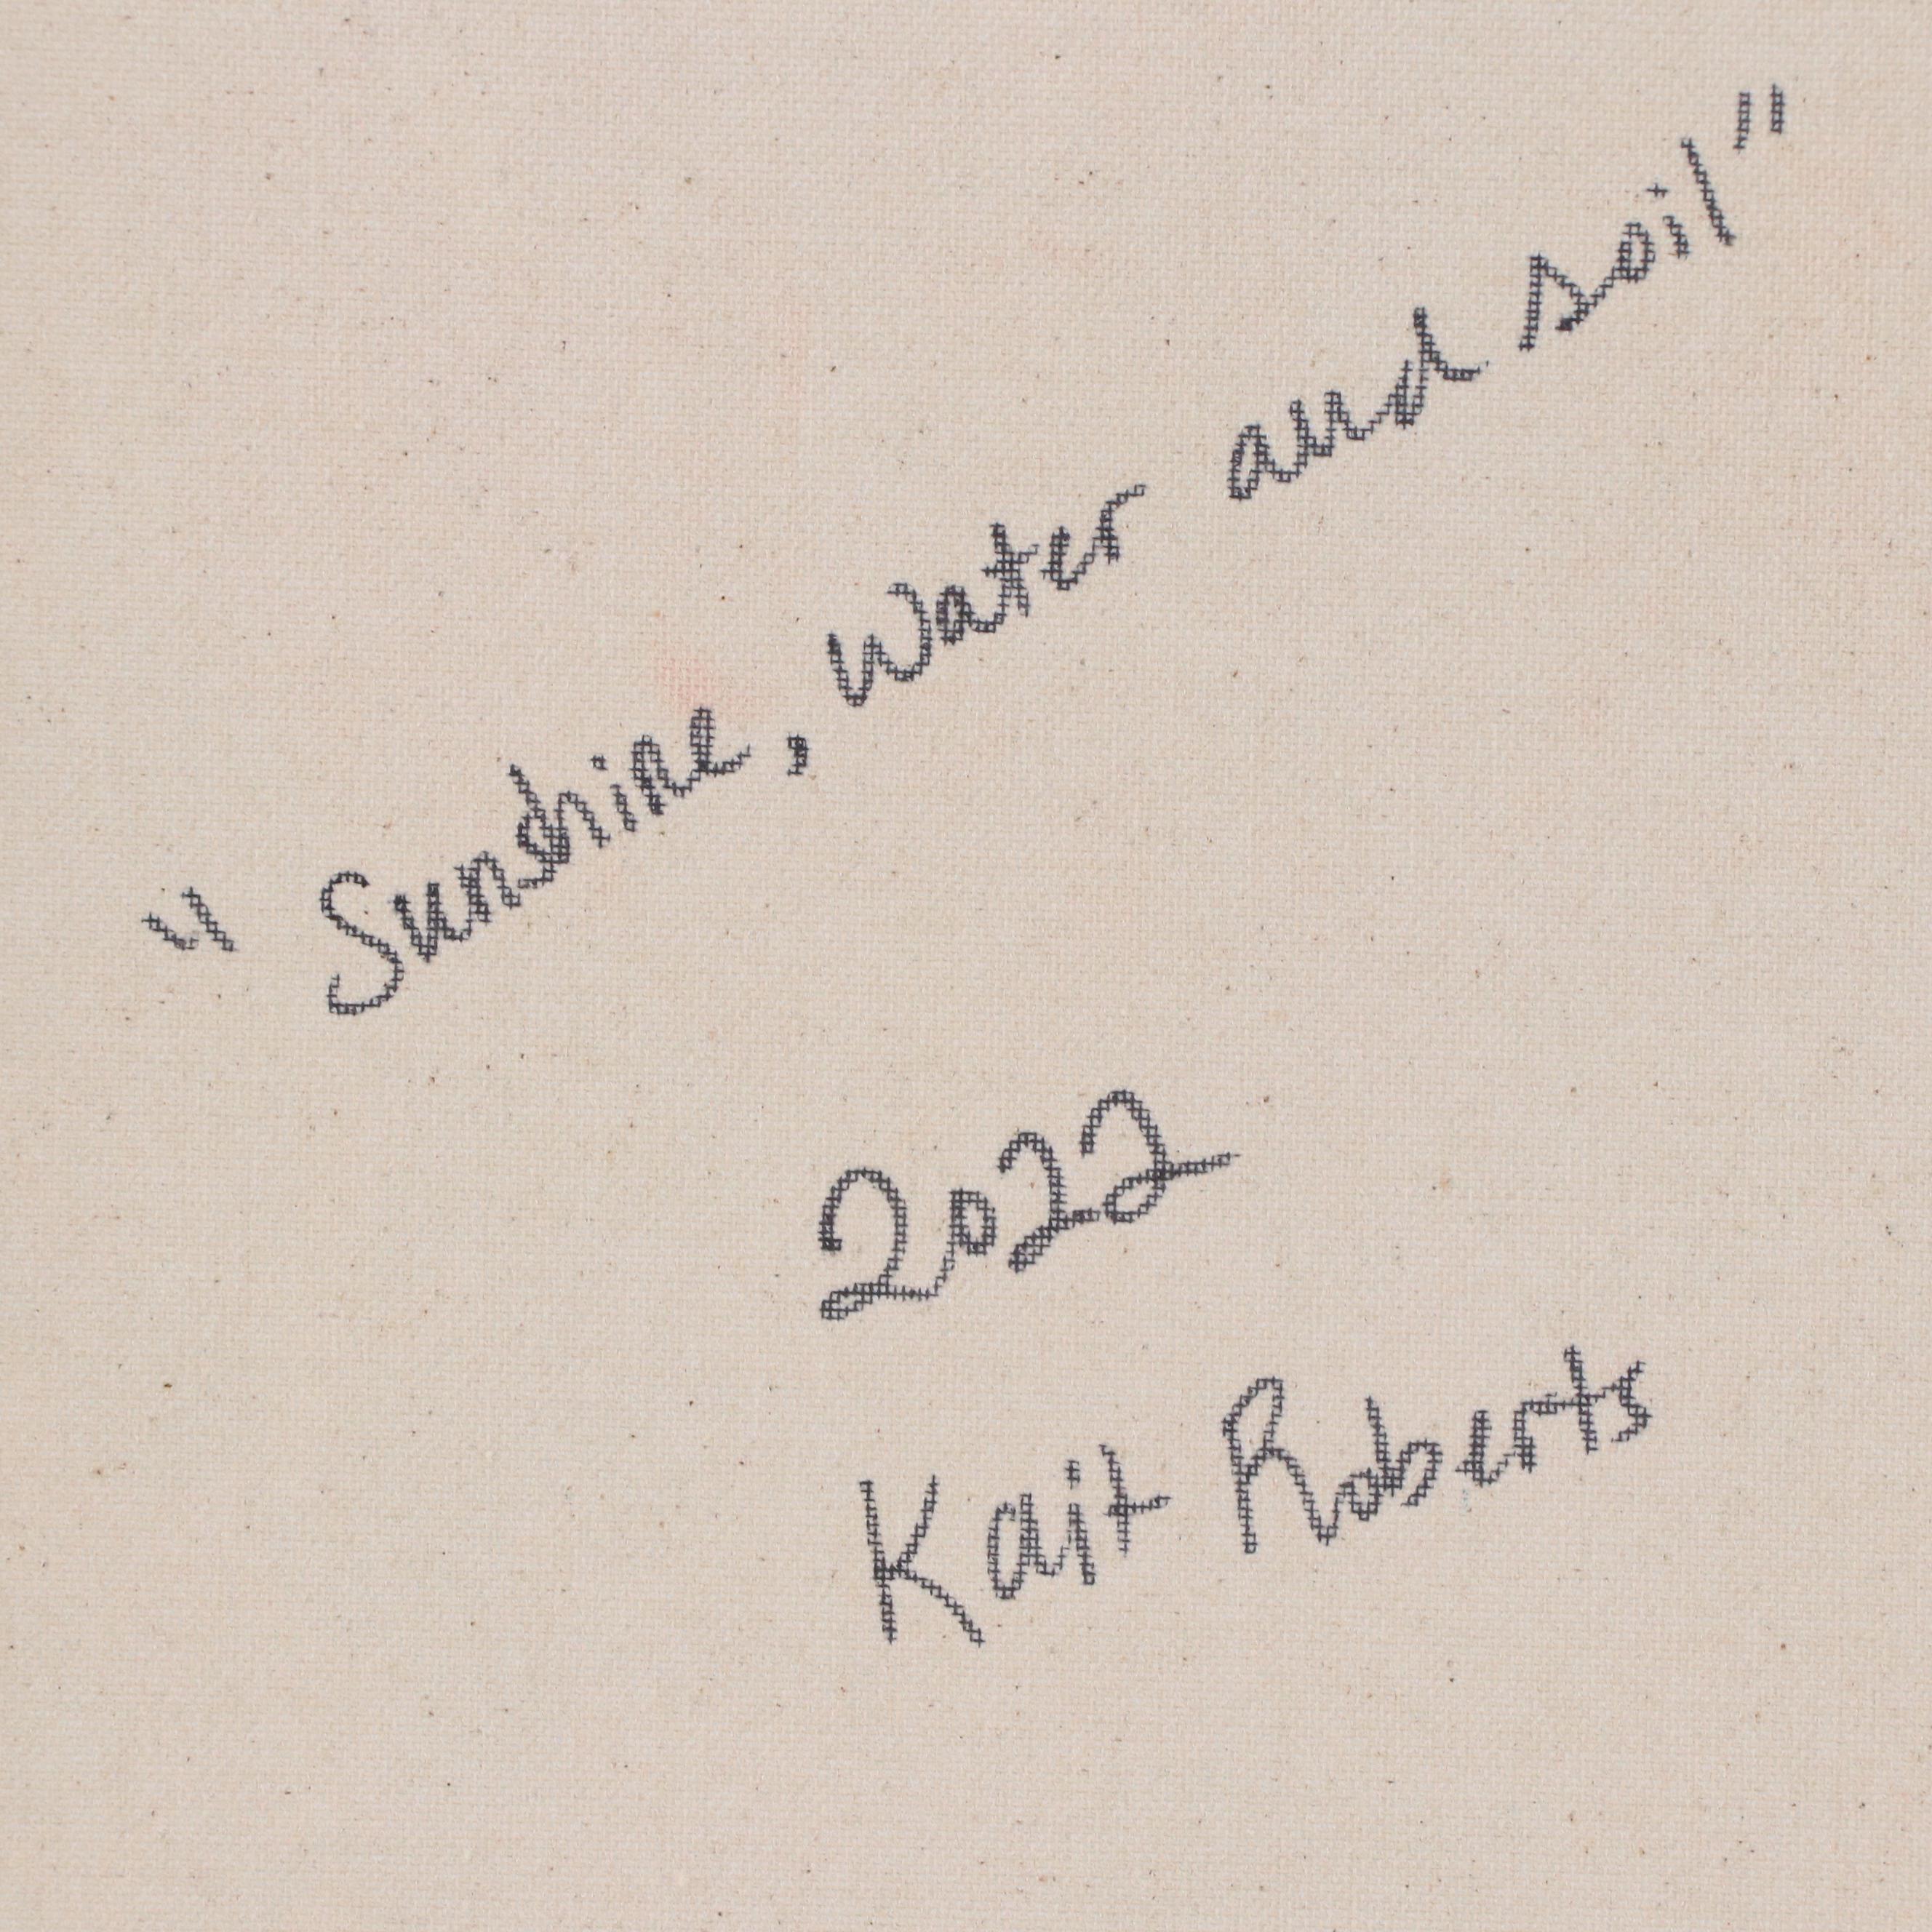 "Sunshine, water and soil"
2022
Kait Roberts